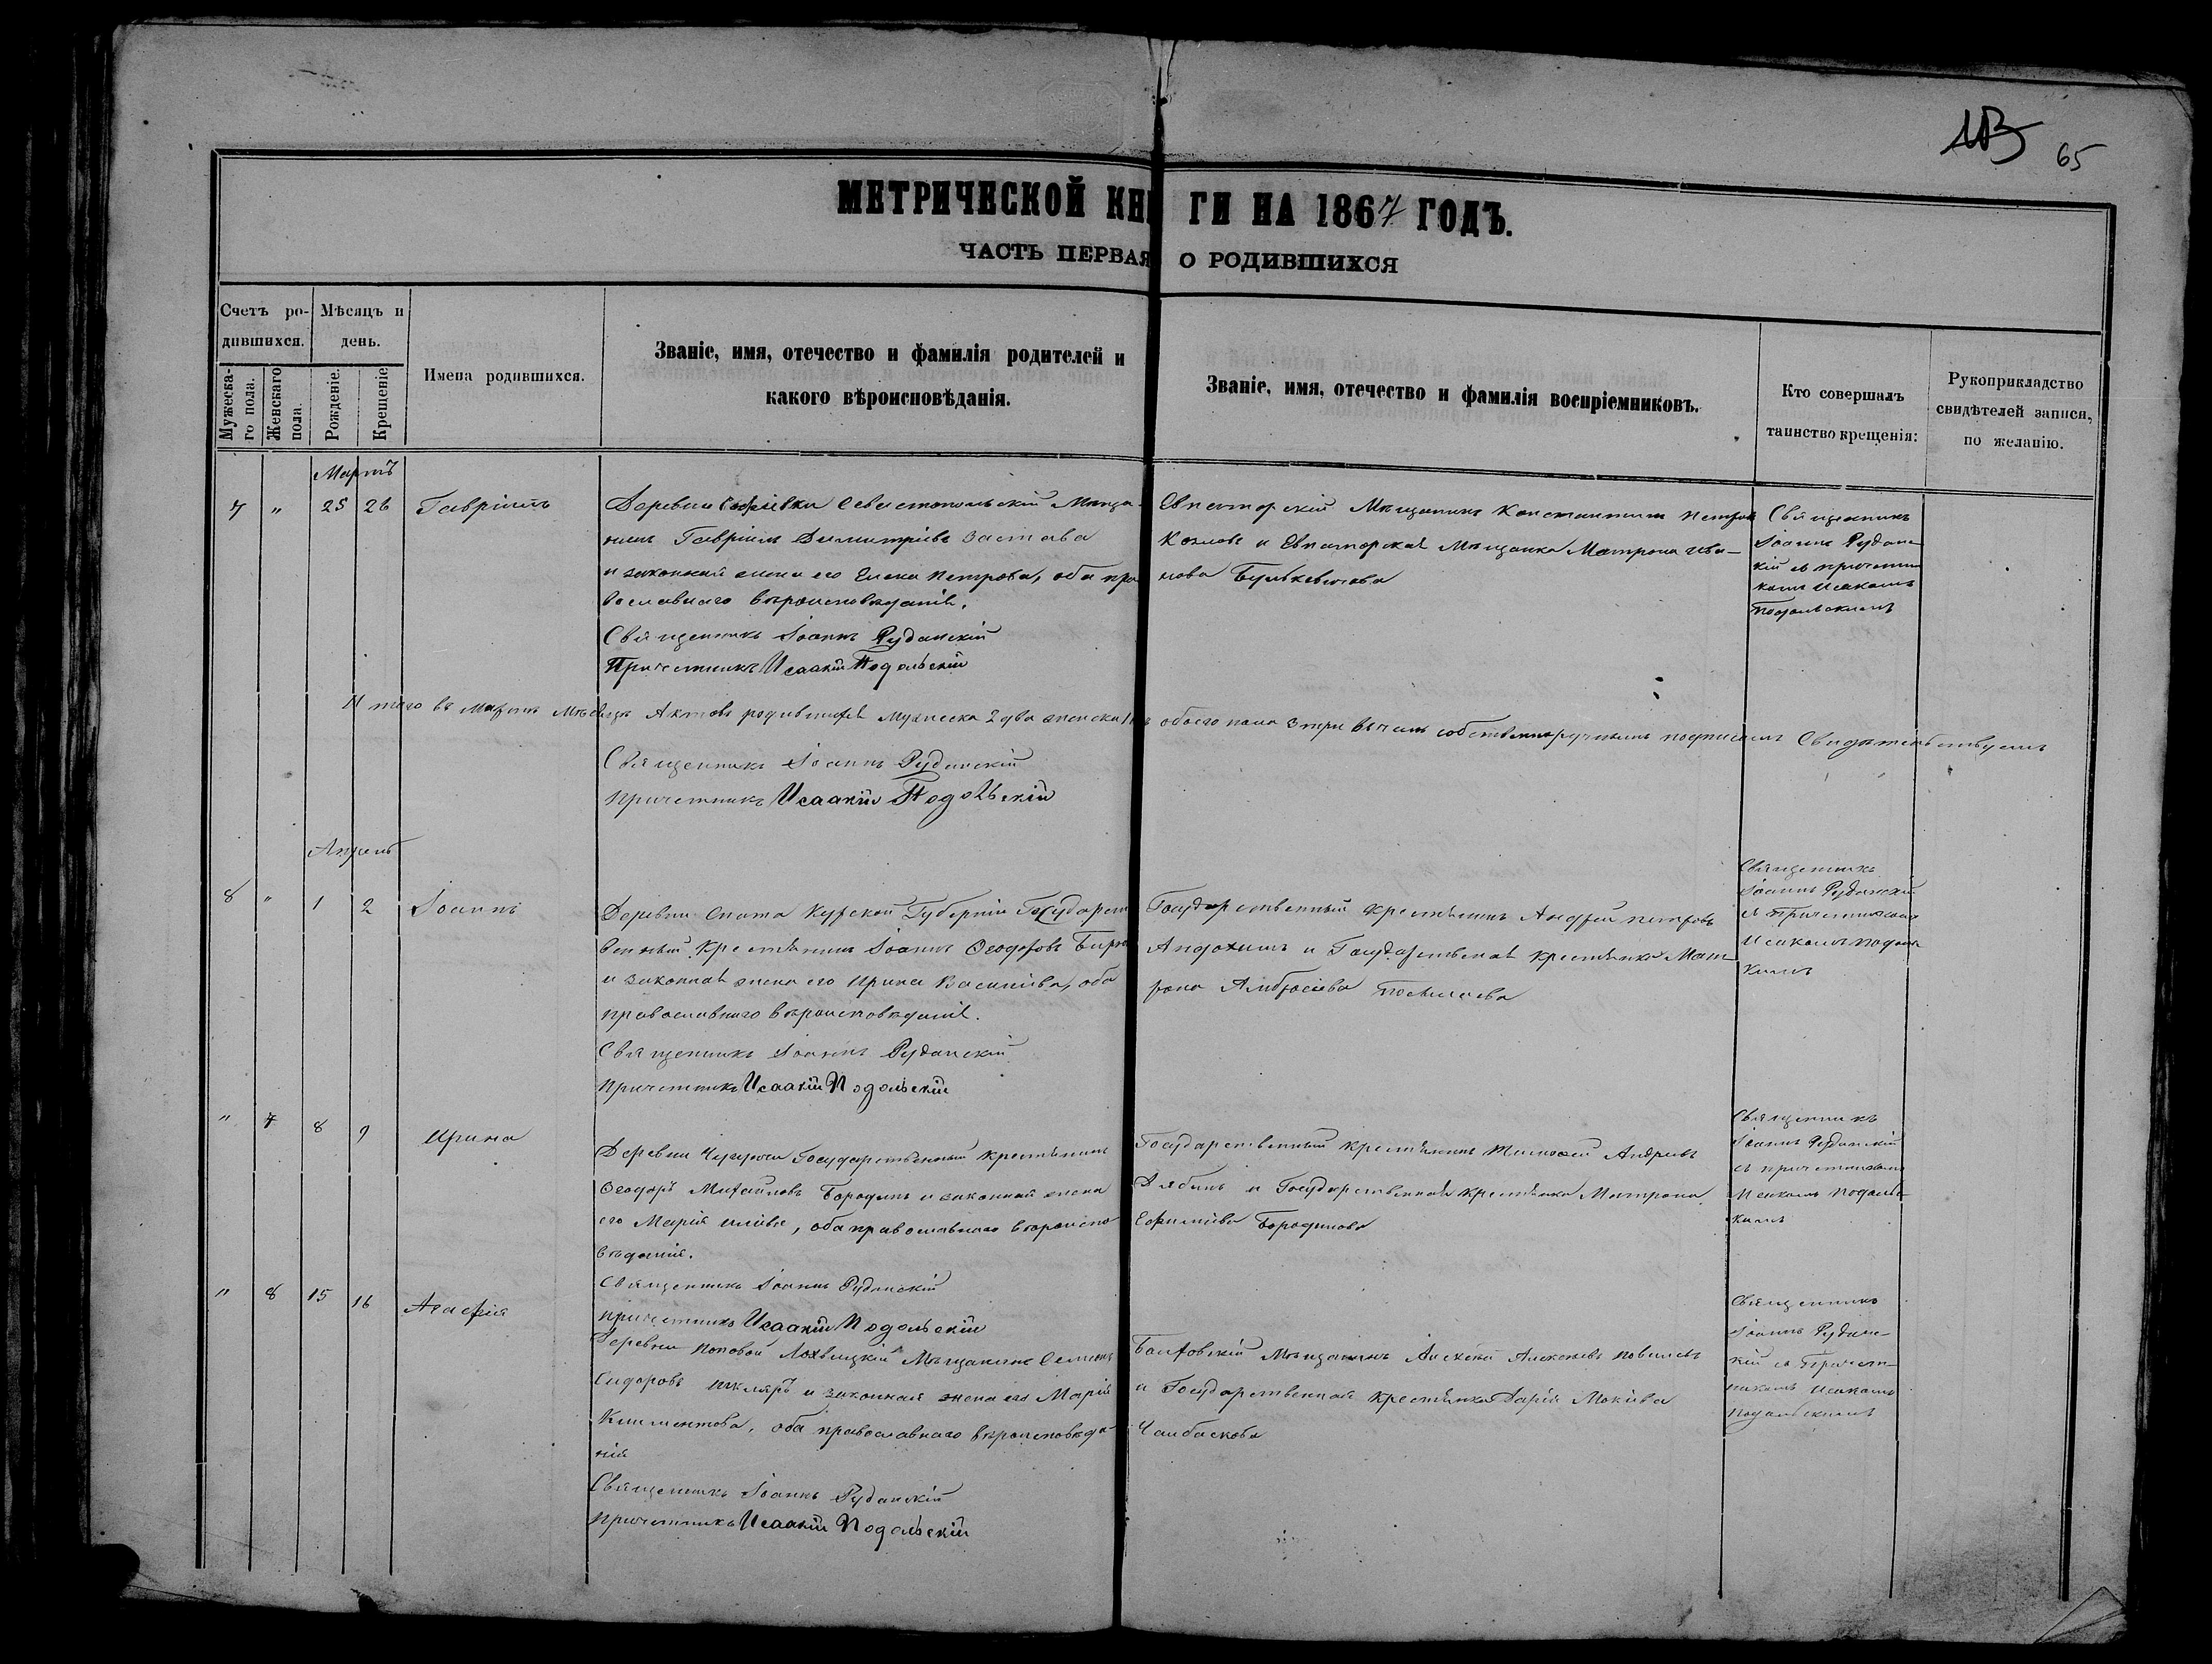 113 65
МЕТРИЧЕСКОЙ КНИГИ НА 1867 ГОДЪ.
ЧАСТЬ ПЕРВАЯ О РОДИВШИХСЯ
Счетъ ро-
дившихся.
Мужеска-
го пола.
Женскаго
пола.
Мѣсяцъ и
день.
Рожденіе.
Крещеніе.
Имена родившихся.
Званіе, имя, отечество и фамилія родителей и
какого вѣроисповѣданія.
Званіе, имя, отечество и фамилія воспріемниковъ.
Кто совершалъ
таинство крещенія:
Рукоприкладство
свидѣтелей записи,
по желанію.
Мартъ
7 " 25 26 Гавріилъ
Деревни Софіевки Севастопольскій Мѣща-
нинъ Гавріилъ Димитріевъ Застава
и законная жена его Елена Петрова, оба пра
вославнаго вѣроисповѣданія.
Священникъ Іоаннъ Руданскій
Причетникъ Исаакій Подольскій
Евпаторскій Мѣщанинъ Константинъ Петровъ
Козловъ и Евпаторская Мѣщанка Матрона Ива-
нова
Священникъ
Іоаннъ Рудан-
кій съ причетни
комъ Исакомъ
Подольскимъ
Итого въ Мартѣ Мѣсяцѣ Актовъ родившихся мужеска 2 два женска 1 обоего пола 3 три въ чемъ собственноручнымъ подписомъ Свидѣтельствуемъ
Священникъ Іоаннъ Руданскій
Причетникъ Исаакій Подольскій
Апрель
8 " 1 2 Іоаннъ
Деревни Спата Курской Губерніи Государст
венный Крестьянинъ Іоаннъ Ѳеодоровъ
и законная жена его Ирина Васильева, оба
православнаго вѣроисповѣданія.
Священникъ Іоаннъ Руданскій
Причетникъ Исаакій Подольскій
Государственный Крестьянинъ Андрей Петровъ
и Государственная крестьянка Мат-
рона Амбросіева
Священникъ
Іоаннъ Руданскій
съ Причетникомъ
Исакомъ Подоль-
кимъ
" 7 8 9 Ирина
Деревни Государственный крестьянинъ
Ѳеодоръ Михайловъ Бородинъ и законная жена
его Марія Иліева, оба православнаго вѣроиспо-
вѣданія.
Священникъ Іоаннъ Руданскій
Причетникъ Исаакій Подольскій
Государственный Крестьянинъ Тимоѳей Андреевъ
и Государственная Крестьянка Матрона
Бородинова
Священникъ
Іоаннъ Руданскій
съ причетникомъ
Исакомъ Подоль-
кимъ
" 8 15 16 Агафія
Деревни Поповой Лохвицкій Мѣщанинъ Семіонъ
Сидоровъ Шкляръ и законная жена его Марія
Климентова, оба православнаго вѣроисповѣда-
нія
Священникъ Іоаннъ Руданскій
Причетникъ Исаакій Подольскій
Мѣщанинъ Алексѣй Алексѣевъ
и Государственная Крестьянка Дарія Мокіева
Священникъ
Іоаннъ Рудан-
кій съ Причет-
никомъ Исакомъ
Подольскимъ